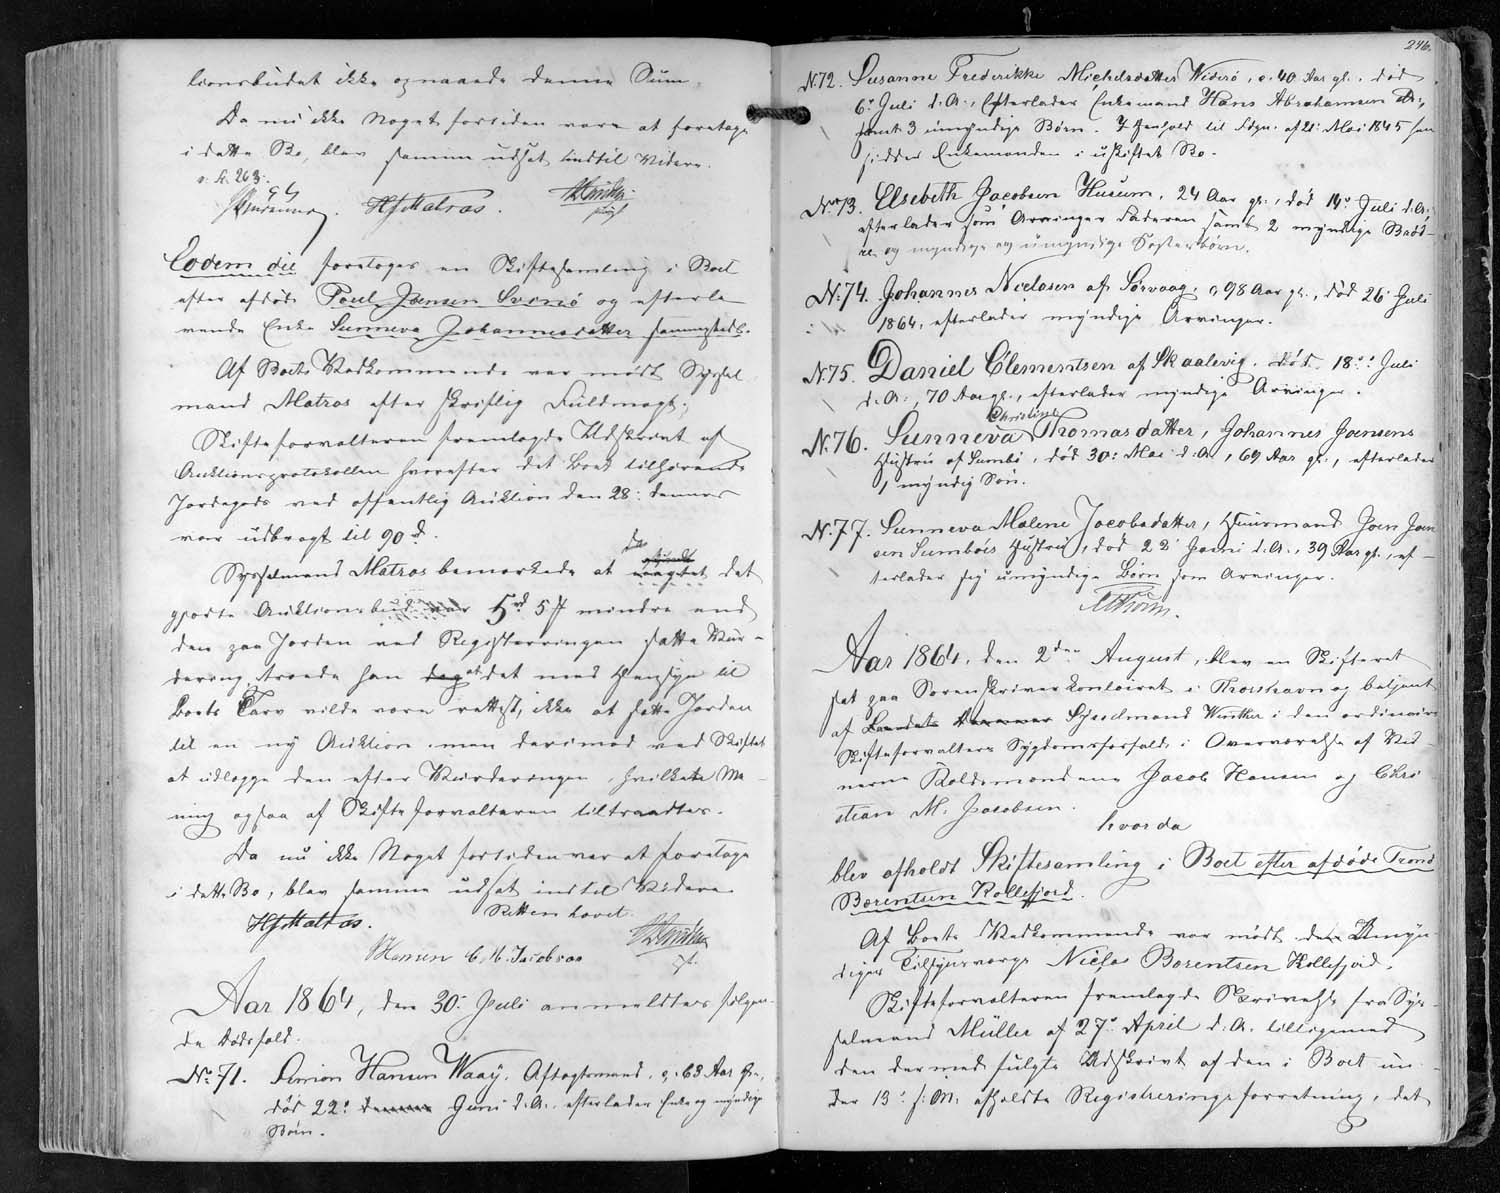 tionsbudet ikke opnaaede denne Sum.
Da nu ikke Noget fortiden var at foretage
i dette Bo, blev samme udsat indtil Videre.
v. S. 263.
HJMatras.
Eodem die foretoges en Skiftesamling i Boet
efter afdøde Poul Joensen Svinø og efterle-
vende Enke Sunneva Johannesdatter sammesteds.
Af Boets Vedkommende var mødt Syssel-
mand Matras efter skriftlig Fuldmagt;
Skifteforvalteren fremlagde Udskrivt af
Auktionsprotokollen hvorefter det Boet tilhørende
Jordegods ved offentlig Auktion den 28: dennes
var udbragt til 90 rd.
Sysselmand Matras bemærkede at det
gjorte Auktionsbud var 5 rd 5 ß mindre end
den paa Jorden ved Registreringen satte Vur-
dering, troede han at det med Hensyn til
Boets Tarv vilde være rettest, ikke at sætte Jorden
til en ny Auktion men derimod ved Skiftet
at udlægge den efter Vurderingen, hvilken Me-
ning ogsaa af Skifteforvalteren tiltraadtes.
Da nu ikke Noget fortiden var at foretage
i dette Bo, blev samme udsat indtil Videre
Retten hævet.
HJMatras.
JHansen C. M. Jacobsen
Aar 1864, den 30: Juli anmeldtes følgen-
de Dødsfald.
No 71. Simion Hansen Waag, Aftægtsmand, c. 63 Aar gl.,
død 22: Juni d. A. efterlader Enke og myndige
Børn.
246.
N. 72. Susanne Frederikke Michelsdatter Viderø, c. 40 Aar gl., død
6: Juli d. A., efterlader Enkemand Hans Abrahamsen
samt 3 umyndige Børn. I Henhold til Fdgn. af 21: Mai 1845 hen-
sidder Enkemanden i uskiftet Bo.
No. 73. Elsebeth Jacobsen Husum, 24 Aar gl., død 14: Juli d. A.,
efterlader som Arvinger Faderen samt 2 myndige Brød-
re og myndige og umyndige Søsterbørn.
N. 74. Johannes Niclasen af Sørvaag, c. 98 Aar gl., død 26: Juli
1864, efterlader myndige Arvinger.
N. 75. Daniel Clementsen af Skaalevig, død 18: Juli
d. A., 70 Aar gl., efterlader myndige Arvinger.
Christine
N. 76. Sunneva Thomasdatter, Johannes Joensens
Hustru af Sumbø, død 30: Mai d. A., 69 Aar gl., efterlader
1 myndig Søn.
N. 77. Sunneva Malene Jacobsdatter, Huusmand Joen Joen-
sen Sumbøes Hustru, død 22: Juni d. A., 39 Aar gl., ef-
terlader sig umyndige Børn som Arvinger.
Aar 1864, den 2den August, blev en Skifteret
sat paa Sorenskriverkontoiret i Thorshavn og betjent
af Sysselmand Winther i den ordinaire
Skifteforvalters Sygdomsforfald i Overværelse af Vid-
nerne Roldsmændene Jacob Hansen og Chri-
stian M. Jacobsen.
hvor da
blev afholdt Skiftesamling i Boet efter afdøde Trond
Berentsen Kollefjord.
Af Boets Vedkommende var mødt den Umyn-
diges Tilsynsværge Niclas Berentsen Kollefjord.
Skifteforvalteren fremlagde Skrivelse fra Sys-
selmand Müller af 27: April d. A. tilligemed
den dermed fulgte Udskrivt af den i Boet un-
der 13: s. M. afholdte Registreringsforretning, det